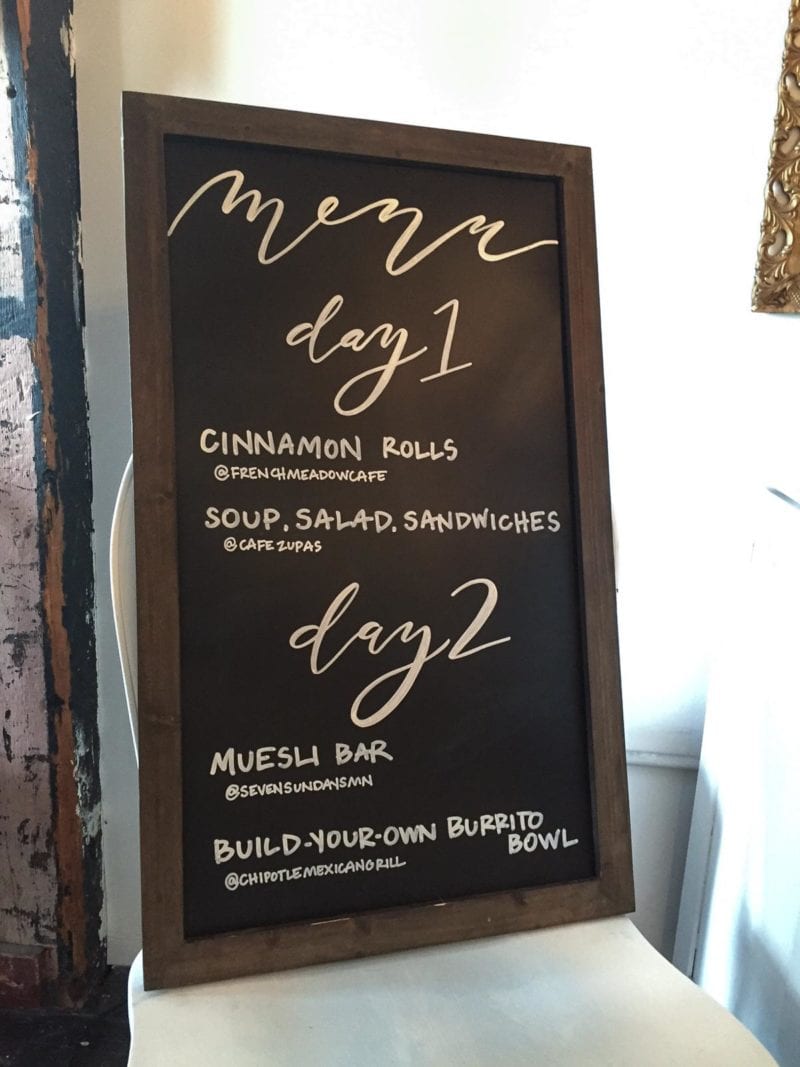 menu
day 1
CINNAMON ROLLS
@FRENCHMEADOWCAFE
SOUP, SALAD, SANDWICHES
@CAFEZUPAS
day 2
MUESLI BAR
@SEVENSUNDAYSMN
BUILD-YOUR-OWN BURRITO
BOWL
@CHIPOTLEMEXICANGRILL